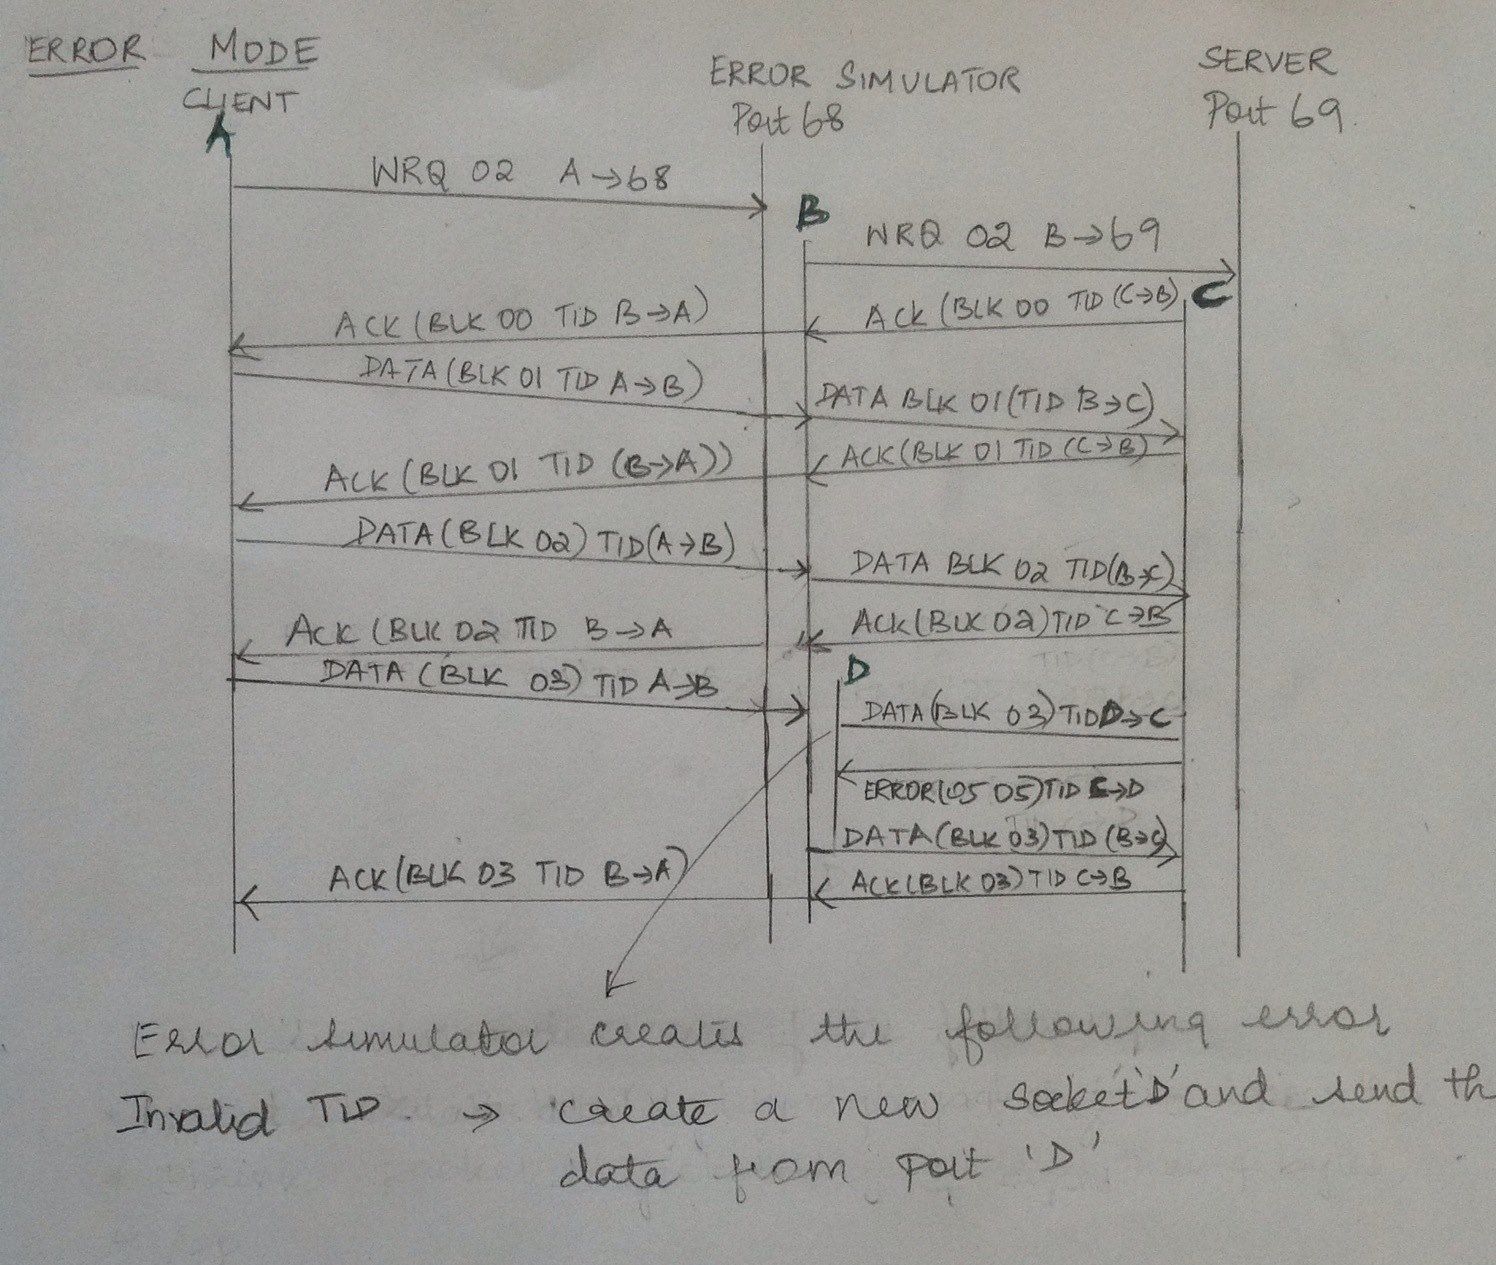 ERROR MODE
CLIENT
A
ERROR SIMULATOR
Port 68
SERVER
Port 69
WRQ 02 A→68
B
WRQ 02 B→69
C
ACK (BLK 00 TID (C→B)
ACK (BLK 00 TID B→A)
DATA (BLK 01 TID A→B)
DATA BLK 01 (TID B→C)
ACK (BLK 01 TID (C→B)
ACK (BLK 01 TID (B→A))
DATA (BLK 02) TID (A→B)
DATA BLK 02 TID (B→C)
ACK (BLK 02) TID C→B
ACK (BLK 02 TID B→A
DATA (BLK 03) TID A→B
D
DATA (BLK 03) TID D→C
ERROR (05 05) TID C→D
DATA (BLK 03) TID (B→C)
ACK (BLK 03) TID C→B
ACK (BLK 03 TID B→A)
Error simulator creates the following error
Invalid TID → create a new socket 'D' and send th
data from port 'D'